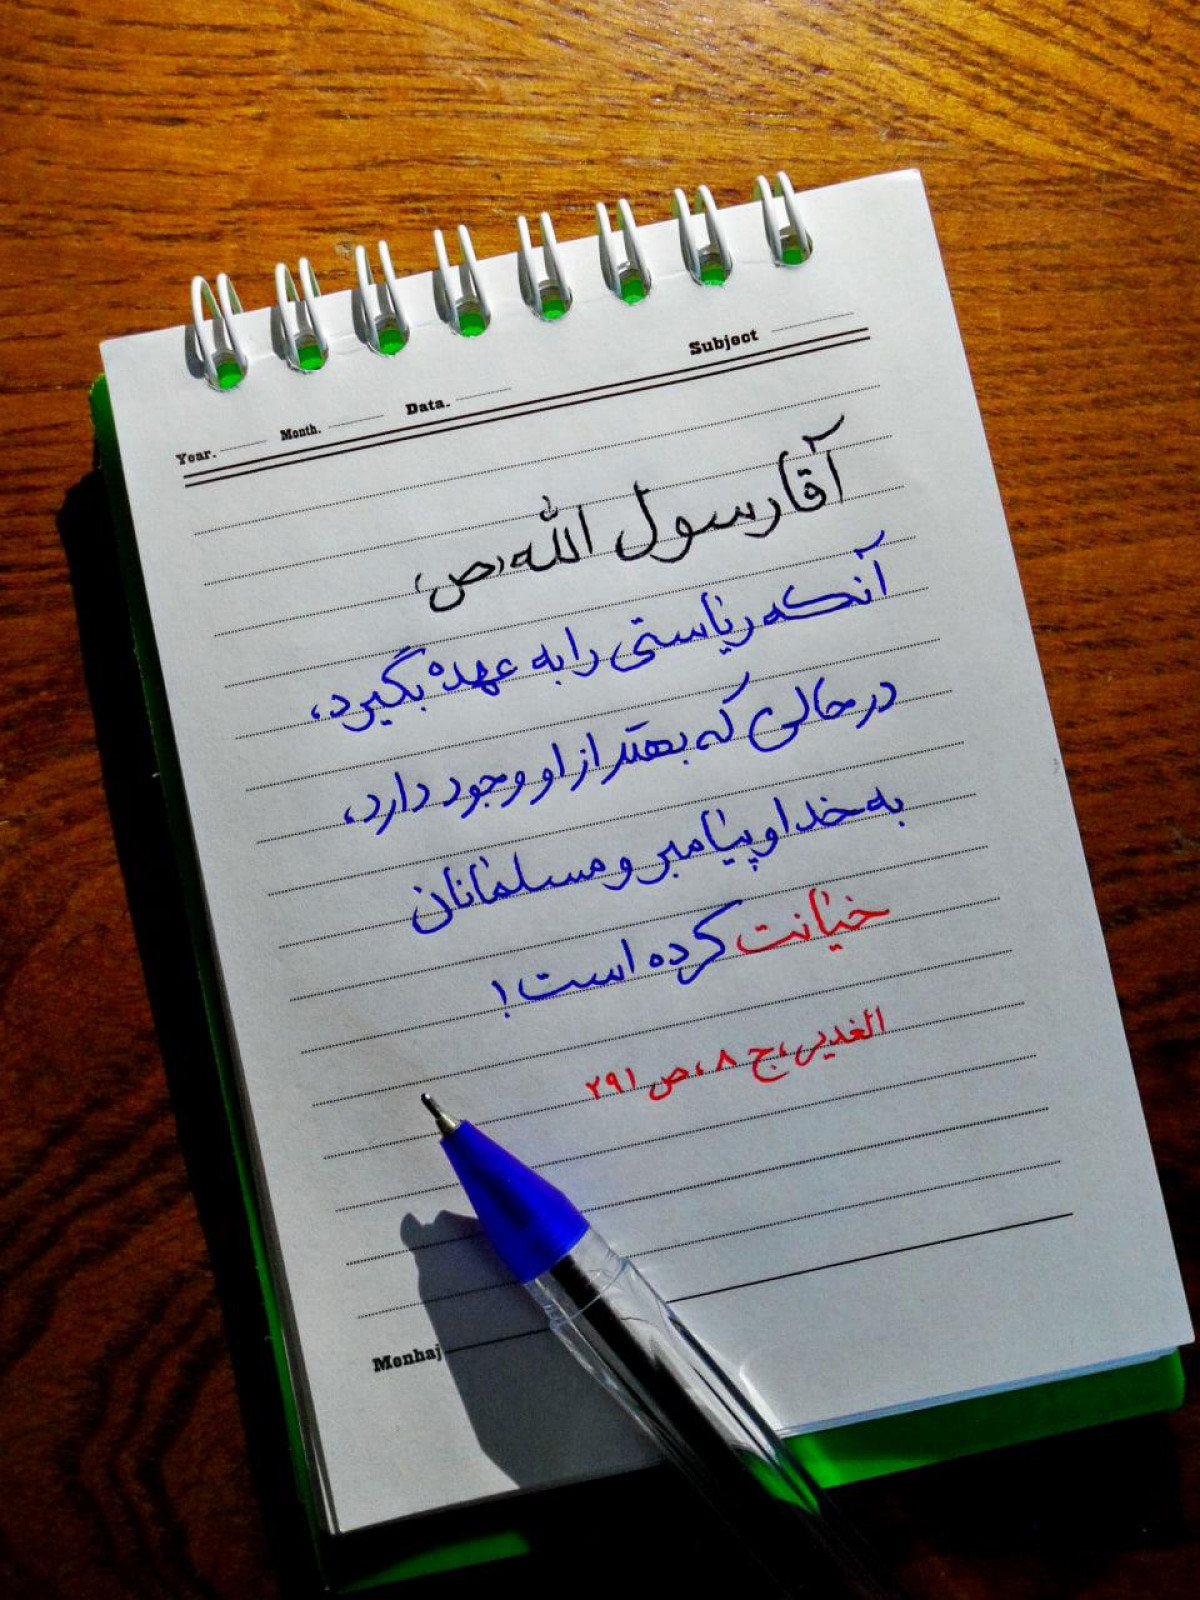 Year. Month. Data. Subject
آقا رسول الله (ص)
آنکه ریاستی را به عهده بگیرد،
در حالی که بهتر از او وجود دارد،
به خدا و پیامبر و مسلمانان
خیانت کرده است!
الغدیر، ج ۸، ص ۲۹۱
Menhaj